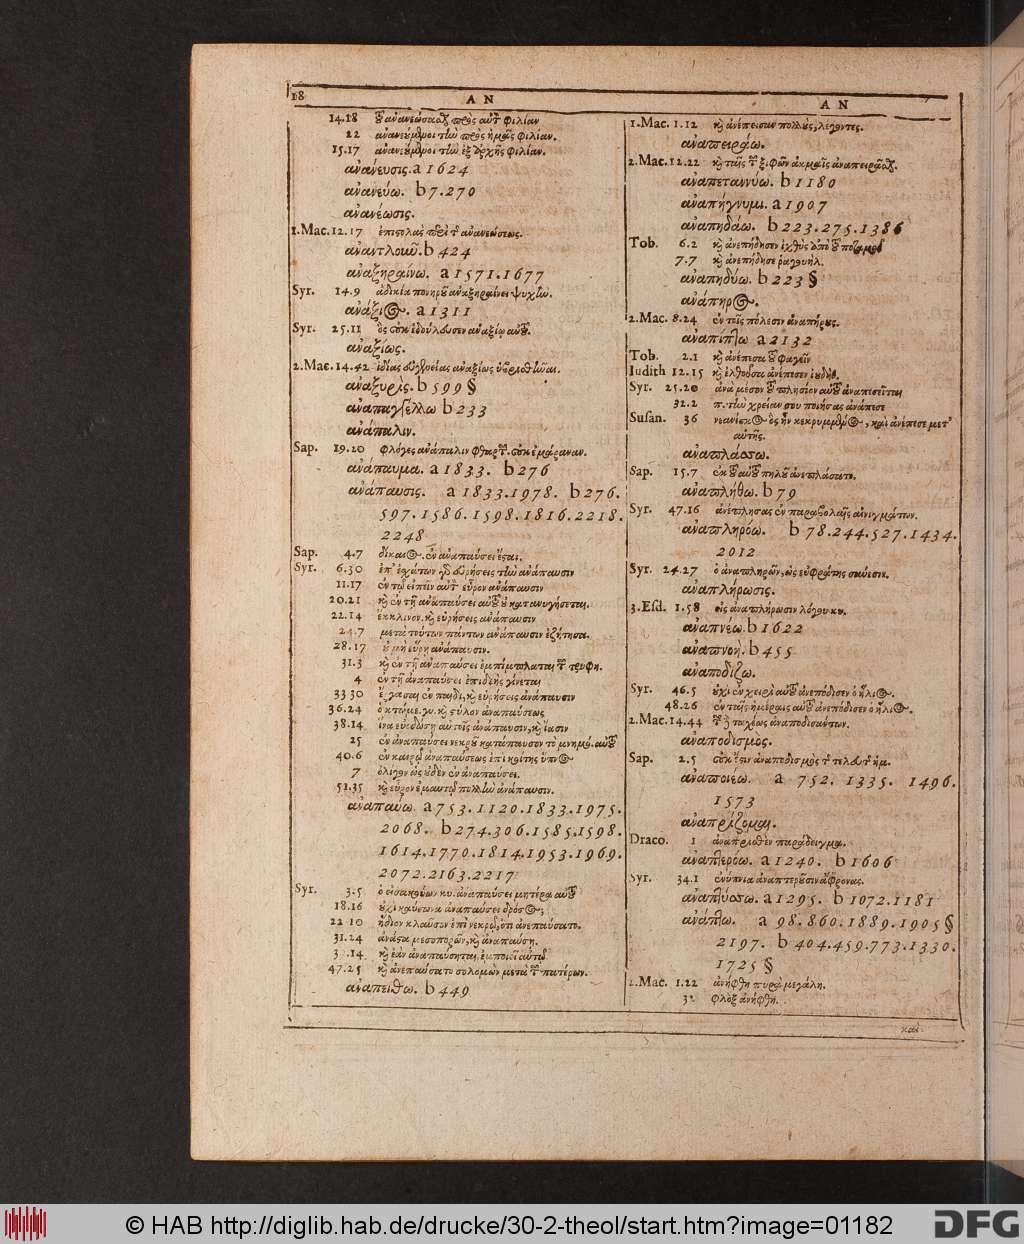 18
AN
AN
14.18 φιλίαν
22 φιλίαν.
15.17 φιλίαν.
ἀνάνευσις. a 1624
ἀνανεύω. b 7.270
ἀνανέωσις.
1.Mac. 12.17 ἀνανεώσεως.
b 424
ἀναξηραίνω. a 1571.1677
Syr. 14.9 ἀδικία πονηροῦ ἀναξηραίνει ψυχὴν.
a 1311
Syr. 25.11
ἀναξίως.
2.Mac. 14.42 ἀναξίως
ἀναξυρὶς. b 599 §
ἀναπαγγέλλω b 233
ἀνάπαλιν.
Sap. 19.20 φλόγες ἀνάπαλιν
ἀνάπαυμα. a 1833. b 276
ἀνάπαυσις. a 1833.1978. b 276.
597.1586.1598.1816.2218.
2248
Sap. 4.7 ἐν ἀναπαύσει ἔσται.
Syr. 6.30 ἀνάπαυσιν
11.17 εὗρον ἀνάπαυσιν
20.21 καὶ ἐν τῇ ἀναπαύσει
22.14 ἔκκλινον, καὶ εὑρήσεις ἀνάπαυσιν
24.7 μετὰ τούτων πάντων ἀνάπαυσιν ἐζήτησα.
28.17 οὐ μὴ εὕρῃ ἀνάπαυσιν.
31.3 καὶ ἐν τῇ ἀναπαύσει
4 ἐν τῇ ἀναπαύσει ἐπιδεὴς γίνεται
33 30 ἐν παιδὶ, καὶ εὑρήσεις ἀνάπαυσιν
36.24 ἀναπαύσεως
38.14 ἀνάπαυσιν, καὶ ἴασιν
25 ἐν ἀναπαύσει νεκροῦ κατάπαυσον τὸ
40.6 ἐν καιρῷ ἀναπαύσεως ἐπὶ κοίτης
7 ὀλίγον ὡς οὐδὲν ἐν ἀναπαύσει.
51.35 καὶ εὗρον ἐμαυτῷ πολλὴν ἀνάπαυσιν.
ἀναπαύω. a 753.1120.1833.1975.
2068. b 274.306.1585.1598.
1614.1770.1814.1953.1969.
2072.2163.2217
Syr. 3.5 ἀναπαύσει μητέρα αὐτοῦ
18.16 οὐχὶ καύσωνα ἀναπαύσει
22 10 ἥδιον κλαῦσον ἐπὶ νεκρῷ, ὅτι ἀνεπαύσατο.
31.24
14 καὶ ἐὰν ἀναπαύσηται,
47.25 καὶ ἀνεπαύσατο σολομὼν μετὰ τῶν πατέρων.
ἀναπείθω. b 449
1.Mac. 1.12 καὶ ἀνέπεισαν πολλοὺς, λέγοντες.
ἀναπειράω.
2.Mac. 12.22 καὶ ταῖς τῶν ξιφῶν ἀκμαῖς
ἀναπεταννύω. b 1180
ἀναπήγνυμι. a 1907
ἀναπηδάω. b 223.275.1386
Tob. 6.2 καὶ ἀνεπήδησεν ἰχθὺς ἀπὸ τοῦ ποταμοῦ
7.7 καὶ ἀνεπήδησε ῥαγουήλ.
ἀναπηδύω. b 223 §
ἀνάπηρος.
2.Mac. 8.24 ἐν ταῖς πόλεσιν ἀναπήρους.
ἀναπίπτω a 2132
Tob. 2.1 καὶ ἀνέπεσα τοῦ φαγεῖν
Iudith 12.15 καὶ ἐλθοῦσα ἀνέπεσεν ἰουδὴθ.
Syr. 25.20 ἀνὰ μέσον τοῦ πλησίον αὐτοῦ ἀναπεσεῖται
32.2 ποιήσας ἀνάπεσε
Susan. 36 νεανίσκος ὃς ἦν κεκρυμμένος, καὶ ἀνέπεσε μετ'
αὐτῆς.
ἀναπλάσσω.
Sap. 15.7 ἐκ τοῦ αὐτοῦ πηλοῦ ἀνεπλάσατο.
ἀναπλήθω. b 79
Syr. 47.16 ἀνέπλησας ἐν παραβολαῖς αἰνιγμάτων.
ἀναπληρόω. b 78.244.527.1434.
2012
Syr. 24.27 ὁ ἀναπληρῶν, ὡς εὐφράτης σύνεσιν.
ἀναπλήρωσις.
3.Esd. 1.58 εἰς ἀναπλήρωσιν λόγου κυ.
ἀναπνέω. b 1622
ἀναπνοὴ. b 455
ἀναποδίζω.
Syr. 46.5 οὐχὶ ἐν χειρὶ αὐτοῦ ἀνεπόδισεν ὁ ἥλιος.
48.26 ἐν ταῖς ἡμέραις αὐτοῦ ἀνεπόδισεν ὁ ἥλιος.
2.Mac. 14.44 ταχέως ἀναποδισάντων.
ἀναποδισμὸς.
Sap. 2.5 οὐκ ἔστιν ἀναποδισμὸς
ἀναποιέω. a 752. 1335. 1496.
1573
ἀναπρίζομαι.
Draco. 1 ἀναπρισθὲν παράδειγμα.
ἀναπτερόω. a 1240. b 1606
Syr. 34.1 ἐνύπνια ἀναπτεροῦσιν ἄφρονας.
ἀναπτύσσω. a 1295. b 1072.1181
ἀνάπτω. a 98.860.1889.1905 §
2197. b 404.459.773.1330.
1725 §
2.Mac. 1.22 ἀνήφθη πυρὰ μεγάλη.
32 φλὸξ ἀνήφθη.
καὶ
© HAB http://diglib.hab.de/drucke/30-2-theol/start.htm?image=01182
DFG